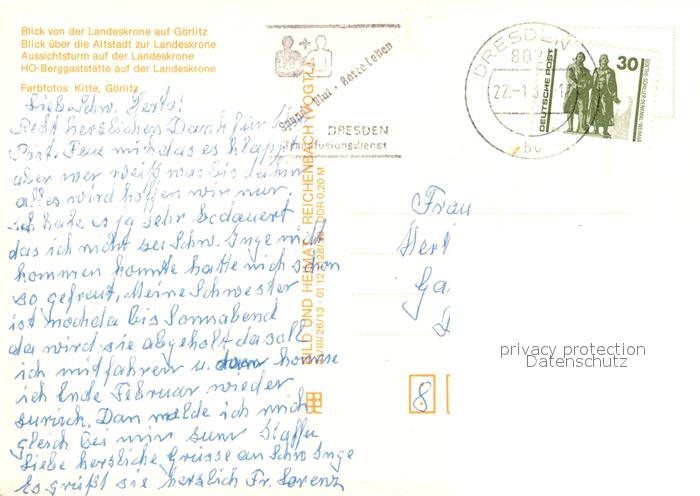 Blick von der Landeskrone auf Görlitz
Blick über die Altstadt zur Landeskrone
Aussichtsturm auf der Landeskrone
HO-Berggaststätte auf der Landeskrone
Farbfotos: Kitte, Görlitz
Liebe Schw. Herta!
Recht herzlichen Dank für
Freue mich das es klappt
aber wer weiß was bis dahin
alles wird hoffen wir nur.
ich habe es ja sehr bedauert
das ich nicht zu Schw. Inge mit
kommen konnte hatte mich schon
so gefreut. Meine Schwester
ist noch da bis Sonnabend
da wird sie abgeholt da soll
ich mitfahren u. dann komme
ich Ende Februar wieder
zurück. Dan melde ich mich
gleich bei mir zum Kaffee
Liebe herzliche Grüsse an Schw Inge
Es grüßt sie herzlich Fr. Lorenz
Spende Blut · Rette Leben
DRESDEN
Transfusionsdienst
BILD UND HEIMAT REICHENBACH (VOGTL)
DRESDEN
802
22.-1
bd
DEUTSCHE POST
30
GOETHE-SCHILLER-DENKMAL, WEIMAR
Frau
Hert
Ga
8
privacy protection
Datenschutz